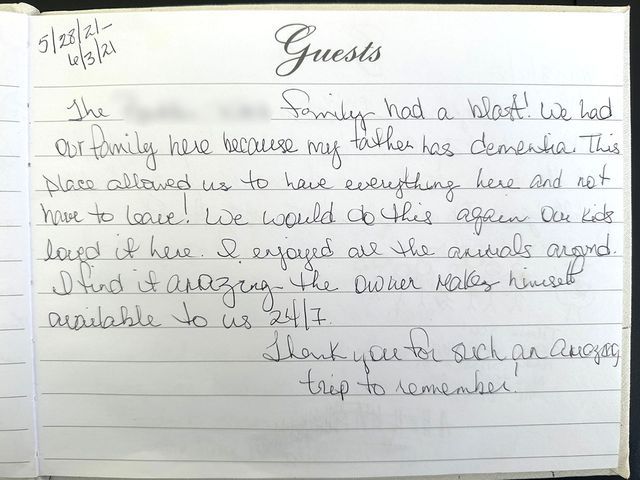 5/28/21-
6/3/21
Guests
The family had a blast! We had
our family here because my father has dementia. This
place allowed us to have everything here and not
have to leave! We would do this again. Our kids
loved it here. I enjoyed all the animals around.
I find it amazing the owner makes himself
available to us 24/7.
Thank you for such an amazing
trip to remember!